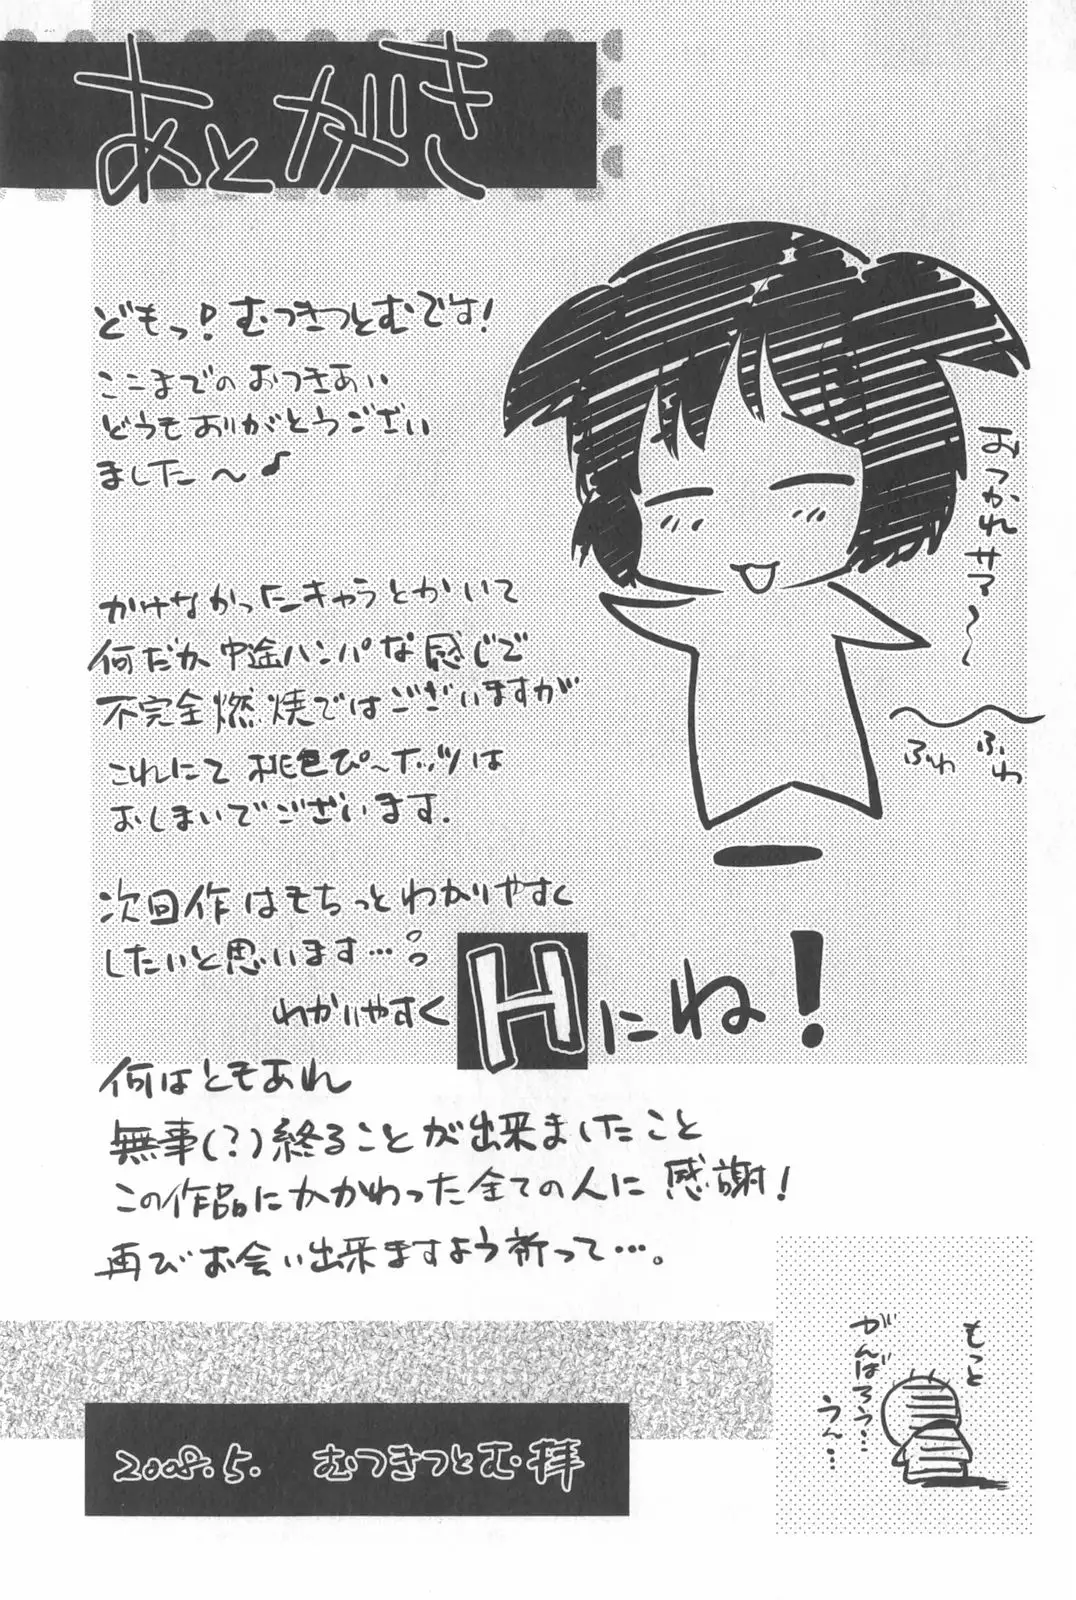 あとがき
どもっ!むつきつとむです!
ここまでのおつきあい
どうもありがとうござい
ました〜♪
おつかれサマ〜
かけなかったキャラとかいて
何だか中途ハンパな感じで
不完全燃焼ではございますが
これにて桃色ぴ〜ホッツは
おしまいでございます.
ふわ
ふわ
次回作はもちっとわかりやすく
したいと思います…。
わかりやすくHにね!
何はともあれ
無事(?)終ることが出来ましたこと
この作品にかかわった全ての人に感謝!
再びお会い出来ますよう祈って…。
もっと
がんばろう…
うん…
2008.5. むつきつとむ拝